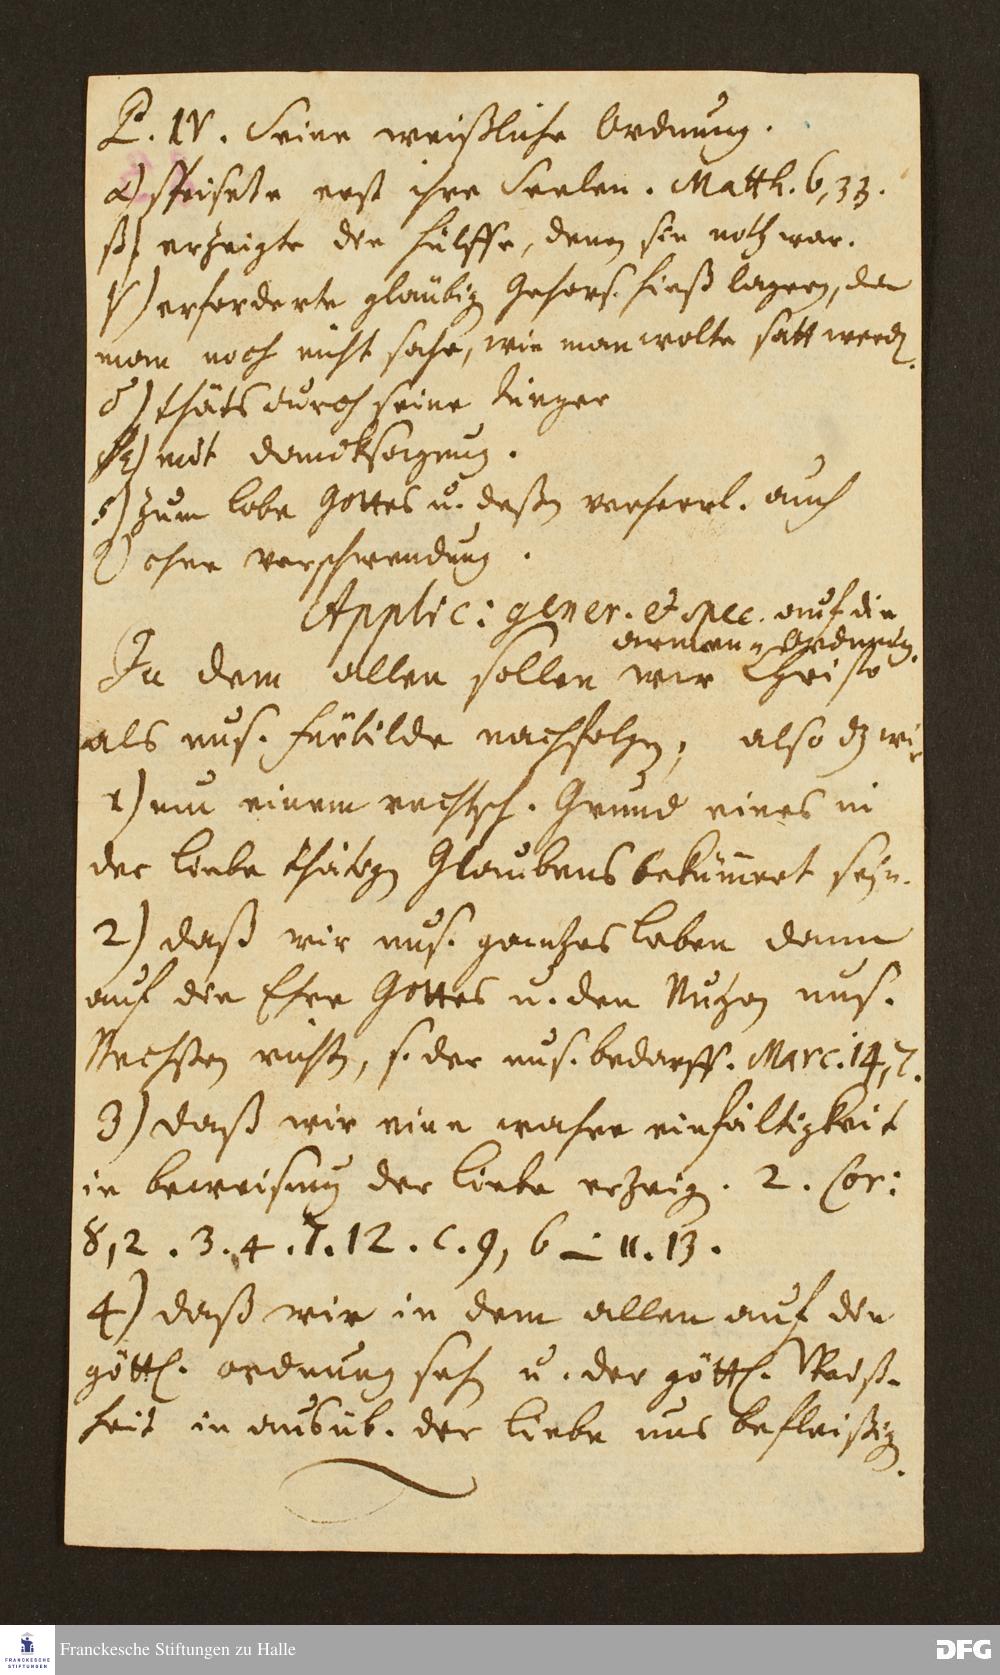 P. IV. Seine weißliche Ordnung.
α) speisete erst ihre Seelen. Matth. 6, 33.
β) erzeigte den hülffe, denen sie noth war.
γ) erforderte gläubig Gehors. hieß lagern, da
man noch nicht sahe, wie man wolte satt werdē.
δ) thäts durch seine Jünger
ε) mit dancksagung.
ς) zum lobe Gottes u. deßen verherrl. auch
ohne verschwendung.
Applic: gener. & spec. auf die
armen-Ordnung.
In dem allen sollen wir Christo
als uns. fürbilde nachfolgen, also dz wir
1) um einen rechtsch. Grund eines in
der liebe thätigen Glaubens bekümert seyn.
2) daß wir uns. gantzes leben dann
auf die Ehre Gottes u. den Nutzen uns.
Nechsten richten, s. der uns. bedarff. Marc. 14, 7.
3) daß wir eine wahre einfältigkeit
in beweisung der liebe erzeig. 2. Cor:
8, 2. 3. 4. 7. 12. C. 9, 6 – 11. 13.
4) daß wir in dem allen auf die
göttl. ordnung sehen u. der göttl. Weiß-
heit in ausüb. der liebe uns befleißig.
Franckesche Stiftungen zu Halle
FRANCKESCHE
STIFTUNGEN
DFG